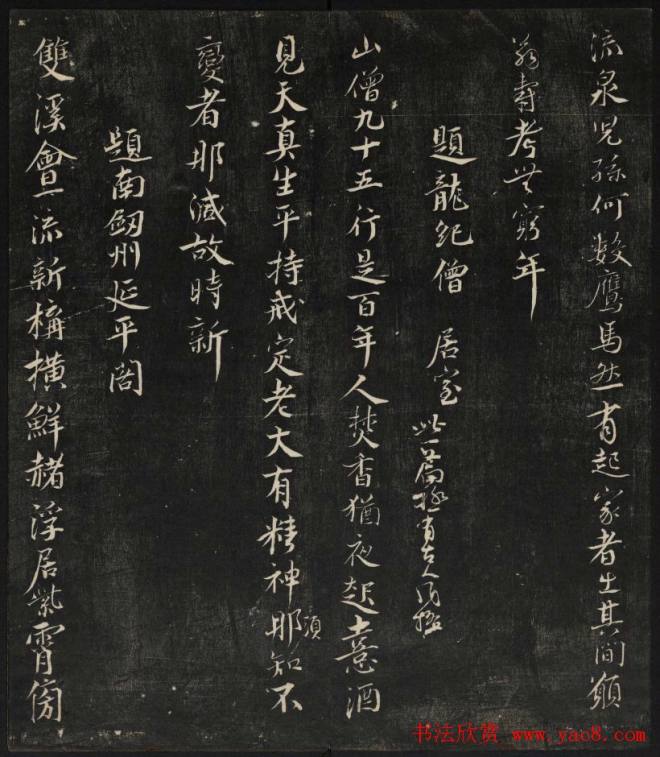 流泉児孫何数鷹馬然有起家者出其間願
翁壽考無窮年
題龍紀僧居室 此一篇極有古人風格
山僧九十五行是百年人焚香猶夜起憙酒
見天真生平持戒定老大有精神那須知不
變者那減故時新
題南劔州延平閣
雙溪會一流新構横鮮赭浮居紫霄傍
书法欣赏 www.yac8.com